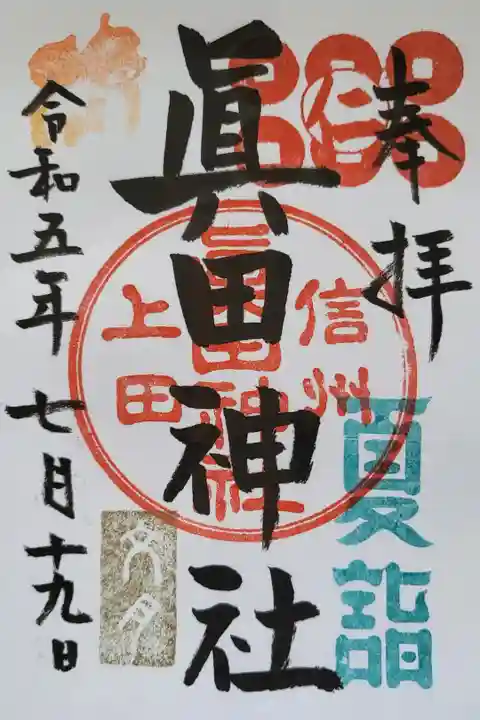 奉拝
夏詣
信州
眞田神社
眞田神社
上田
文月
令和五年七月十九日